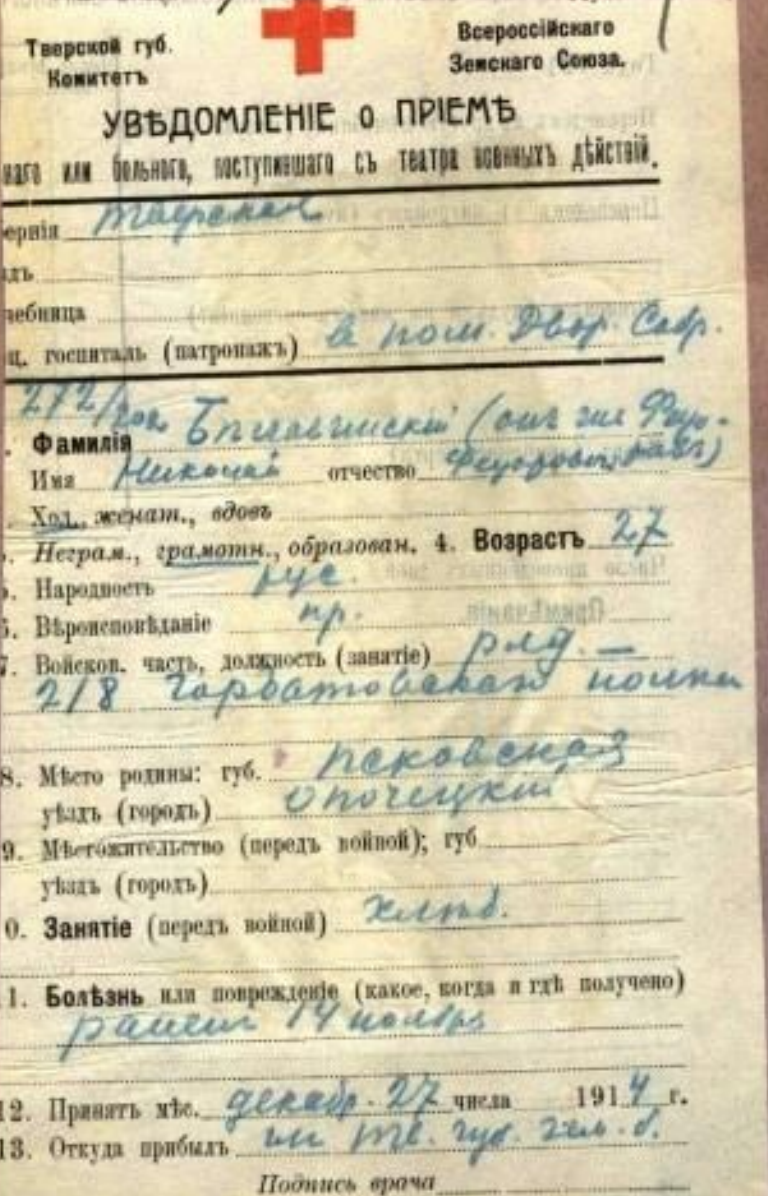 Тверской губ. Комитетъ
Всероссійскаго Земскаго Союза.
УВѢДОМЛЕНІЕ о ПРІЕМѢ
наго или больного, поступившаго съ театра военныхъ дѣйствій.
ернія Тверская
здъ
чебница
ц. госпиталь (патронажъ) в пом. Двор. Собр.
272/
Фамилія (онъ же
Имя Николай отчество Федорович
Хол., женат., вдовъ
Неграм., грамотн., образован. 4. Возрастъ 27
5. Народность рус.
6. Вѣроисповѣданіе пр.
7. Войсков. часть, должность (занятіе) ряд. —
218 Горбатовскаго полка
8. Мѣсто родины: губ. Псковская
уѣздъ (городъ) Опочецкій
9. Мѣстожительство (передъ войной); губ
уѣздъ (городъ)
0. Занятіе (передъ войной) хлѣб.
1. Болѣзнь или поврежденіе (какое, когда и гдѣ получено)
ранен 14 ноября
12. Принятъ мѣс. декабр. 27 числа 1914 г.
13. Откуда прибылъ из Тв. губ. зем. б.
Подпись врача